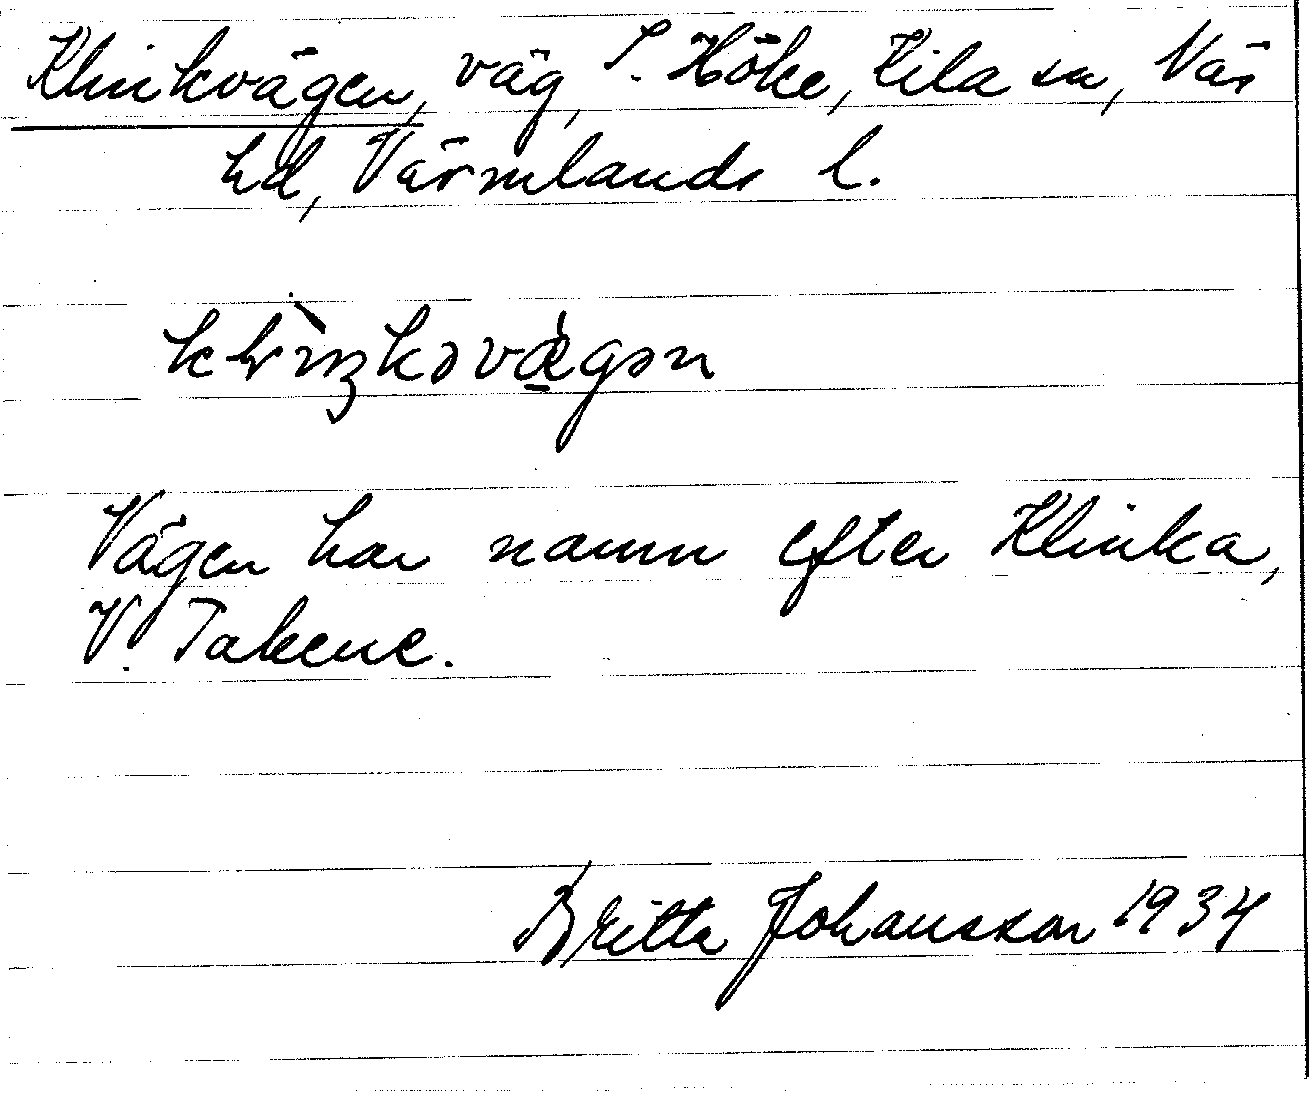 Klinkvägen, väg, S. Höke, Kila sn, Näs
hd, Värmlands l.
Vägen har namn efter Klinka,
V. Takene.
Britta Johansson 1934